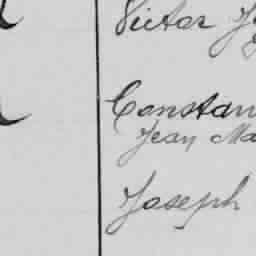 Victor
Constan
Jean Ma
Joseph